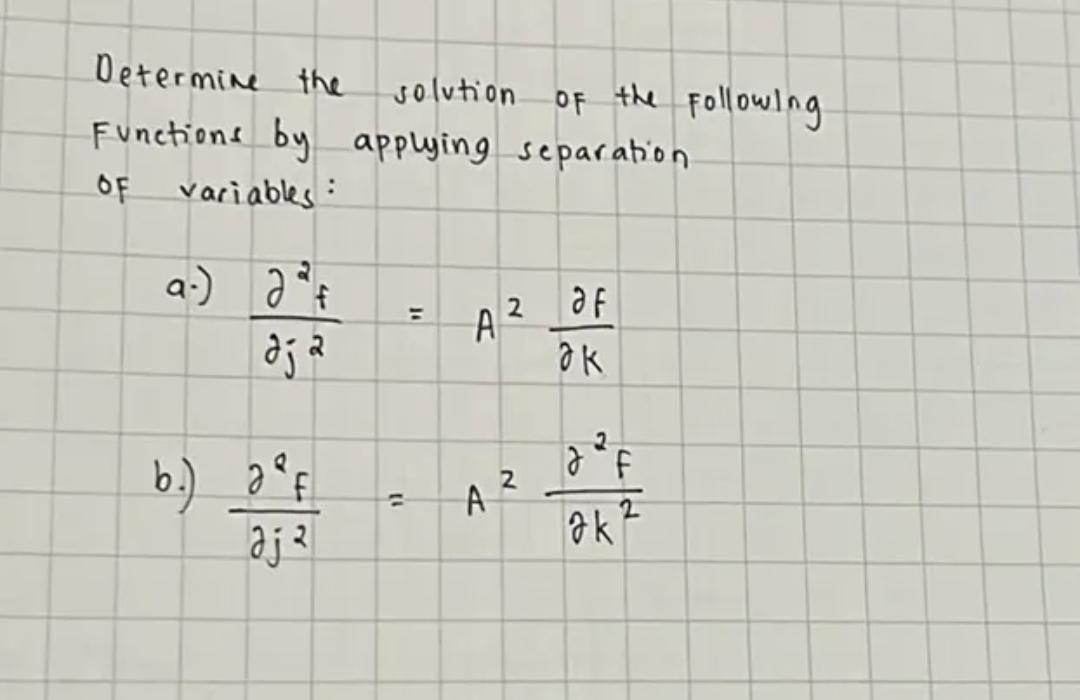 Determine the solution of the following
Functions by applying separation
of variables:
a.) ∂²f/∂j² = A² ∂f/∂k
b.) ∂²f/∂j² = A² ∂²f/∂k²